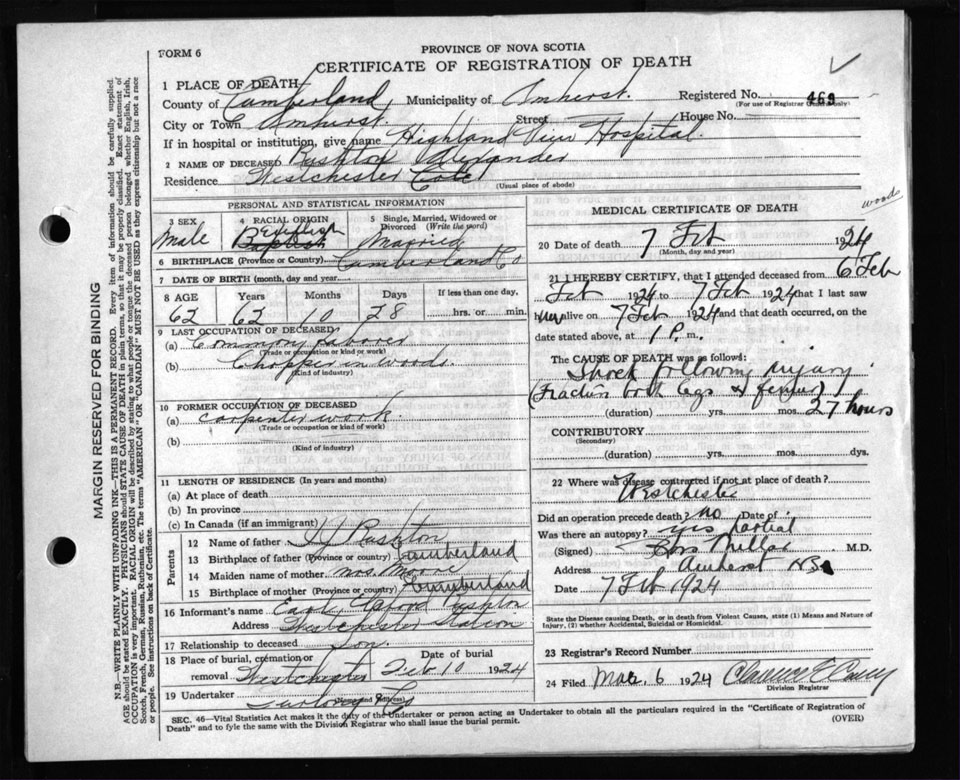 FORM 6
PROVINCE OF NOVA SCOTIA
CERTIFICATE OF REGISTRATION OF DEATH
1 PLACE OF DEATH
County of Cumberland, Municipality of Amherst. Registered No. 469
(For use of Registrar General only)
City or Town Amherst. Street House No.
If in hospital or institution, give name Highland View Hospital.
2 NAME OF DECEASED Rushton Alexander
Residence Westchester
(Usual place of abode)
PERSONAL AND STATISTICAL INFORMATION
3 SEX Male
4 RACIAL ORIGIN English
5 Single, Married, Widowed or Divorced (Write the word) Married
6 BIRTHPLACE (Province or Country) Cumberland Co
7 DATE OF BIRTH (month, day and year)
8 AGE Years Months Days If less than one day,
62 62 10 28 hrs. or min.
9 LAST OCCUPATION OF DECEASED
(a) Common Laborer
(Trade or occupation or kind of work)
(b) Chopper in woods.
(Kind of industry)
10 FORMER OCCUPATION OF DECEASED
(a) Carpenter work.
(Trade or occupation or kind of work)
(b)
(Kind of industry)
11 LENGTH OF RESIDENCE (In years and months)
(a) At place of death
(b) In province
(c) In Canada (if an immigrant)
Parents
12 Name of father Rushton
13 Birthplace of father (Province or country) Cumberland
14 Maiden name of mother Mrs. Moore
15 Birthplace of mother (Province or country) Cumberland
16 Informant's name Earl Rushton
Address Westchester Station
17 Relationship to deceased Son.
18 Place of burial, cremation or removal Westchester Date of burial Feb 10 1924
19 Undertaker
SEC. 46—Vital Statistics Act makes it the duty of the Undertaker or person acting as Undertaker to obtain all the particulars required in the "Certificate of Registration of
Death" and to fyle the same with the Division Registrar who shall issue the burial permit.
(OVER)
woods
MEDICAL CERTIFICATE OF DEATH
20 Date of death 7 Feb 1924
(Month, day and year)
21 I HEREBY CERTIFY, that I attended deceased from 6 Feb
Feb 1924 to 7 Feb 1924 that I last saw
alive on 7 Feb 1924 and that death occurred, on
date stated above, at 1 P. m.
The CAUSE OF DEATH was as follows:
Shock following injury
(Fracture both legs & femur)
(duration) yrs. mos. 27 hours
CONTRIBUTORY
(Secondary)
(duration) yrs. mos. dys.
22 Where was disease contracted if not at place of death?
Westchester
Did an operation precede death? no Date of
Was there an autopsy? yes partial
(Signed) M.D.
Address Amherst NS
Date 7 Feb 1924
State the Disease causing Death, or in death from Violent Causes, state (1) Means and Nature of
Injury, (2) whether Accidental, Suicidal or Homicidal.
23 Registrar's Record Number
24 Filed 6 1924 Clarence
Division Registrar
MARGIN RESERVED FOR BINDING
N.B.—WRITE PLAINLY WITH UNFADING INK—THIS IS A PERMANENT RECORD. Every item of information should be carefully supplied.
AGE should be stated EXACTLY. PHYSICIANS should STATE CAUSE OF DEATH in plain terms, so that it may be properly classified. Exact statement of
OCCUPATION is very important. RACIAL ORIGIN will be described by stating to what people or tongue the deceased person belonged whether English, Irish,
Scotch, French, German, Russian, Ruthenian, etc. The terms "AMERICAN" or "CANADIAN" MUST NOT BE USED as they express citizenship but not a race
or people. See instructions on back of Certificate.